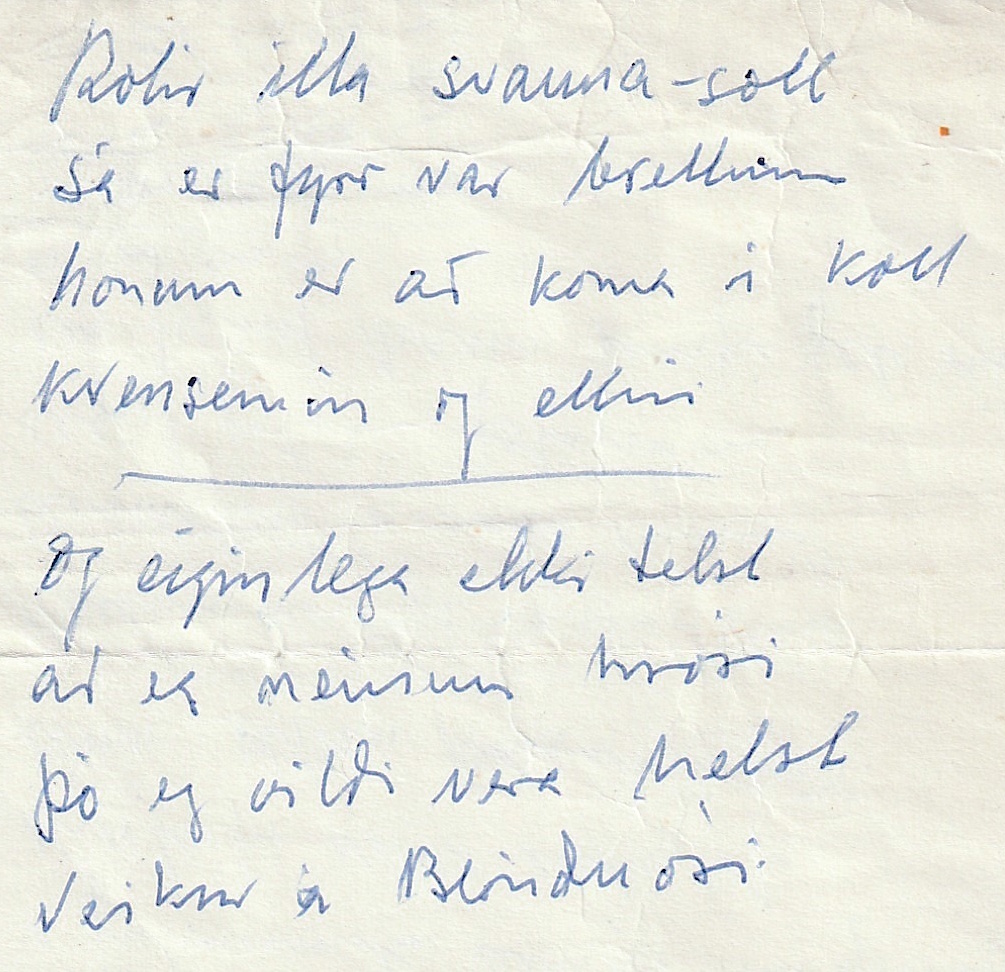 Þolir illa svanna-soll
Sá er fyrr var brellinn
honum er að koma í koll
kvensemin og ellin
Og eiginlega ekki telst
að eg neinum hrósi
þó eg vildi vera helst
Veikur á Blönduósi